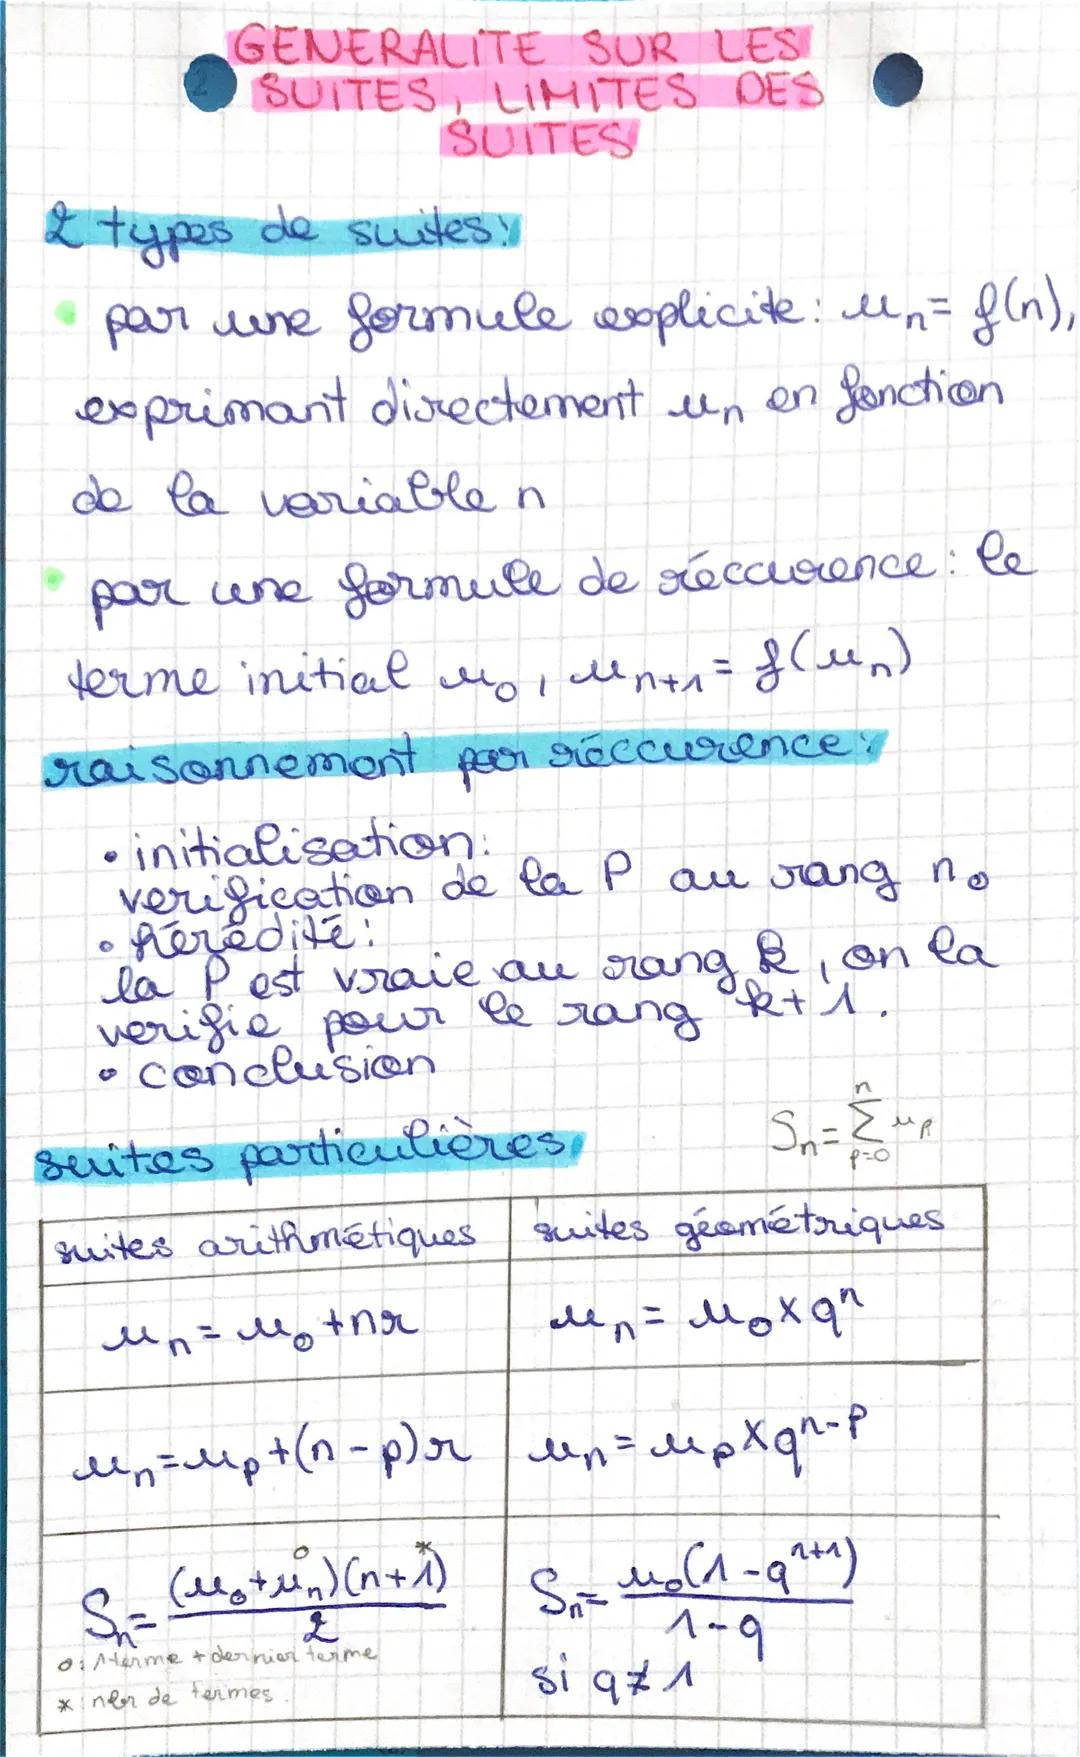 GENERALITE SUR LES
SUITES, LIMITES DES
SUITES
2 types de suites:
• par une formule explicite: uₙ = f(n),
exprimant directement uₙ en fonction
de la variable n
• par une formule de réccurence: le
terme initial u₀, uₙ₊₁ = f(uₙ)
raisonnement par réccurence:
• initialisation:
verification de la P au rang n₀
• hérédité:
la P est vraie au rang k, on la
verifie pour le rang k+1.
• conclusion
Sₙ = Σⁿₚ₌₀ uₚ
suites particulières
suites arithmétiques | suites géométriques
uₙ = u₀ + nr | uₙ = u₀ x qⁿ
uₙ = uₚ + (n - p)r | uₙ = uₚ x qⁿ⁻ᵖ
Sₙ = (u₀ + uₙ)°(n + 1)* / 2 | Sₙ = u₀(1 - qⁿ⁺¹) / 1 - q
o: 1 terme + dernier terme
* nbr de termes.
si q ≠ 1